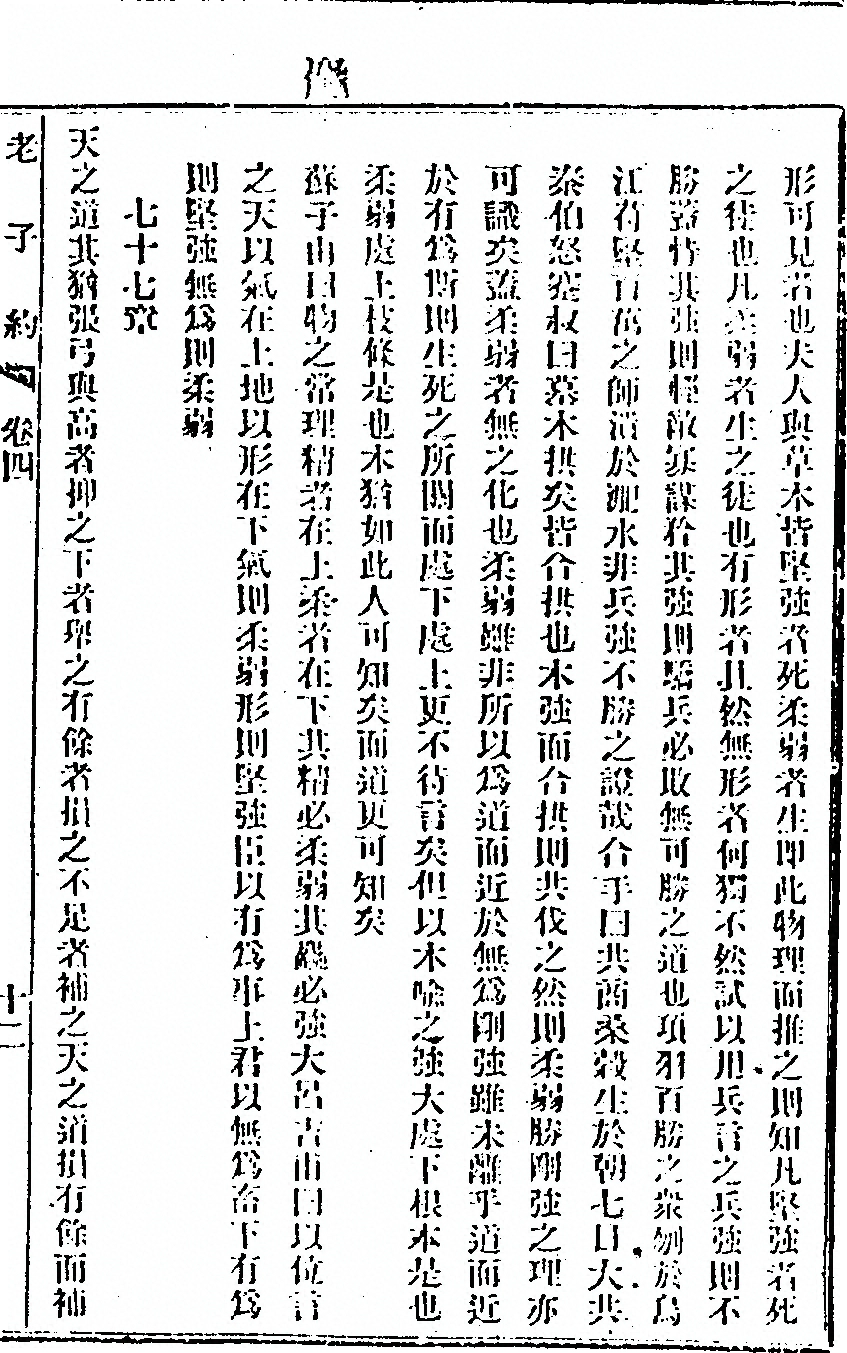 形可見者也夫人與草木皆堅強者死柔弱者生即此物理而推之則知凡堅強者死
之徒也凡柔弱者生之徒也有形者且然無形者何獨不然試以用兵言之兵強則不
勝蓋恃其強則輕敵寡謀矜其強則驕兵必敗無可勝之道也項羽百勝之衆刎於烏
江苻堅百萬之師潰於淝水非兵強不勝之證哉合乎曰共商桑穀生於朝七日大共
秦伯怒蹇叔曰墓木拱矣皆合拱也木強而合拱則共伐之然則柔弱勝剛強之理亦
可識矣蓋柔弱者無之化也柔弱雖非所以為道而近於無為剛強雖未離乎道而近
於有為斯則生死之所關而處下處上更不待言矣但以木喻之強大處下根本是也
柔弱處上枝條是也木猶如此人可知矣而道更可知矣
蘇子由曰物之常理精者在上柔者在下其精必柔弱其麤必強大呂吉甫曰以位言
之天以氣在上地以形在下氣則柔弱形則堅強臣以有為事上君以無為畜下有為
則堅強無為則柔弱
七十七章
天之道其猶張弓與高者抑之下者舉之有餘者損之不足者補之天之道損有餘而補
老子約 卷四 十二